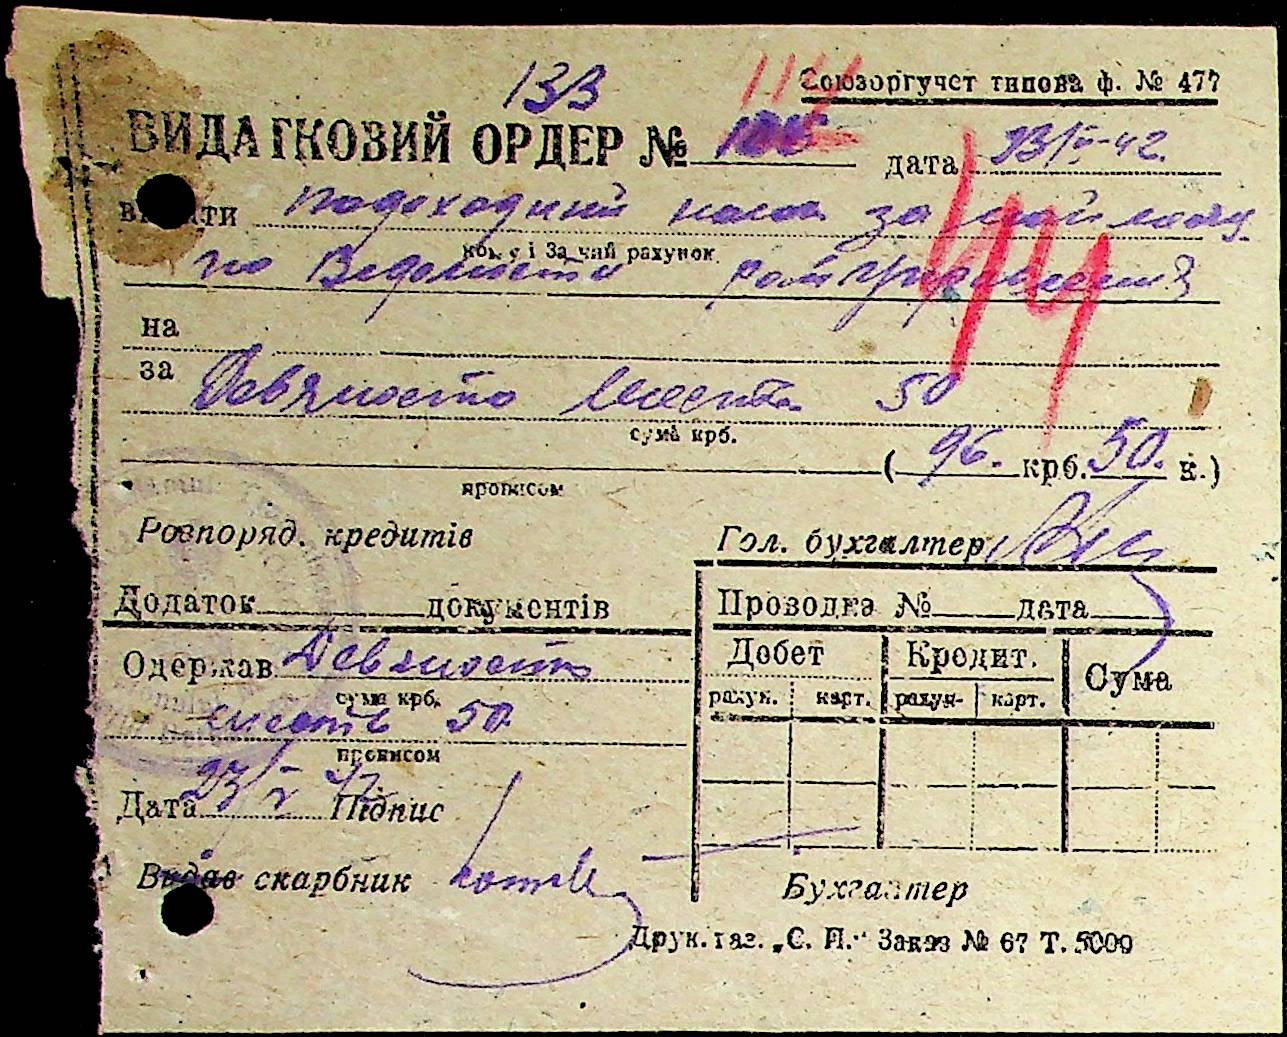 133 114
Союзоргучет типова ф. № 477
ВИДАТКОВИЙ ОРДЕР № дата 23/V-42
видати Подоходний налог за май месяц
кому і за чий рахунок
по Ведомости райуправления
44
на
за Девяносто шесть 50
сума крб.
( 96. крб. 50. к.)
прописом
Розпоряд. кредитів Гол. бухгалтер
Додаток документів Проводка № дата
Дебет Кредит. Сума
рахун. карт. рахун- карт.
Одержав Девяносто
сума крб.
шесть 50
прописом
Дата 23/V 42 Підпис
Видав скарбник
Бухгалтер
Друк. газ. „С. П.“ Заказ № 67 Т. 5000